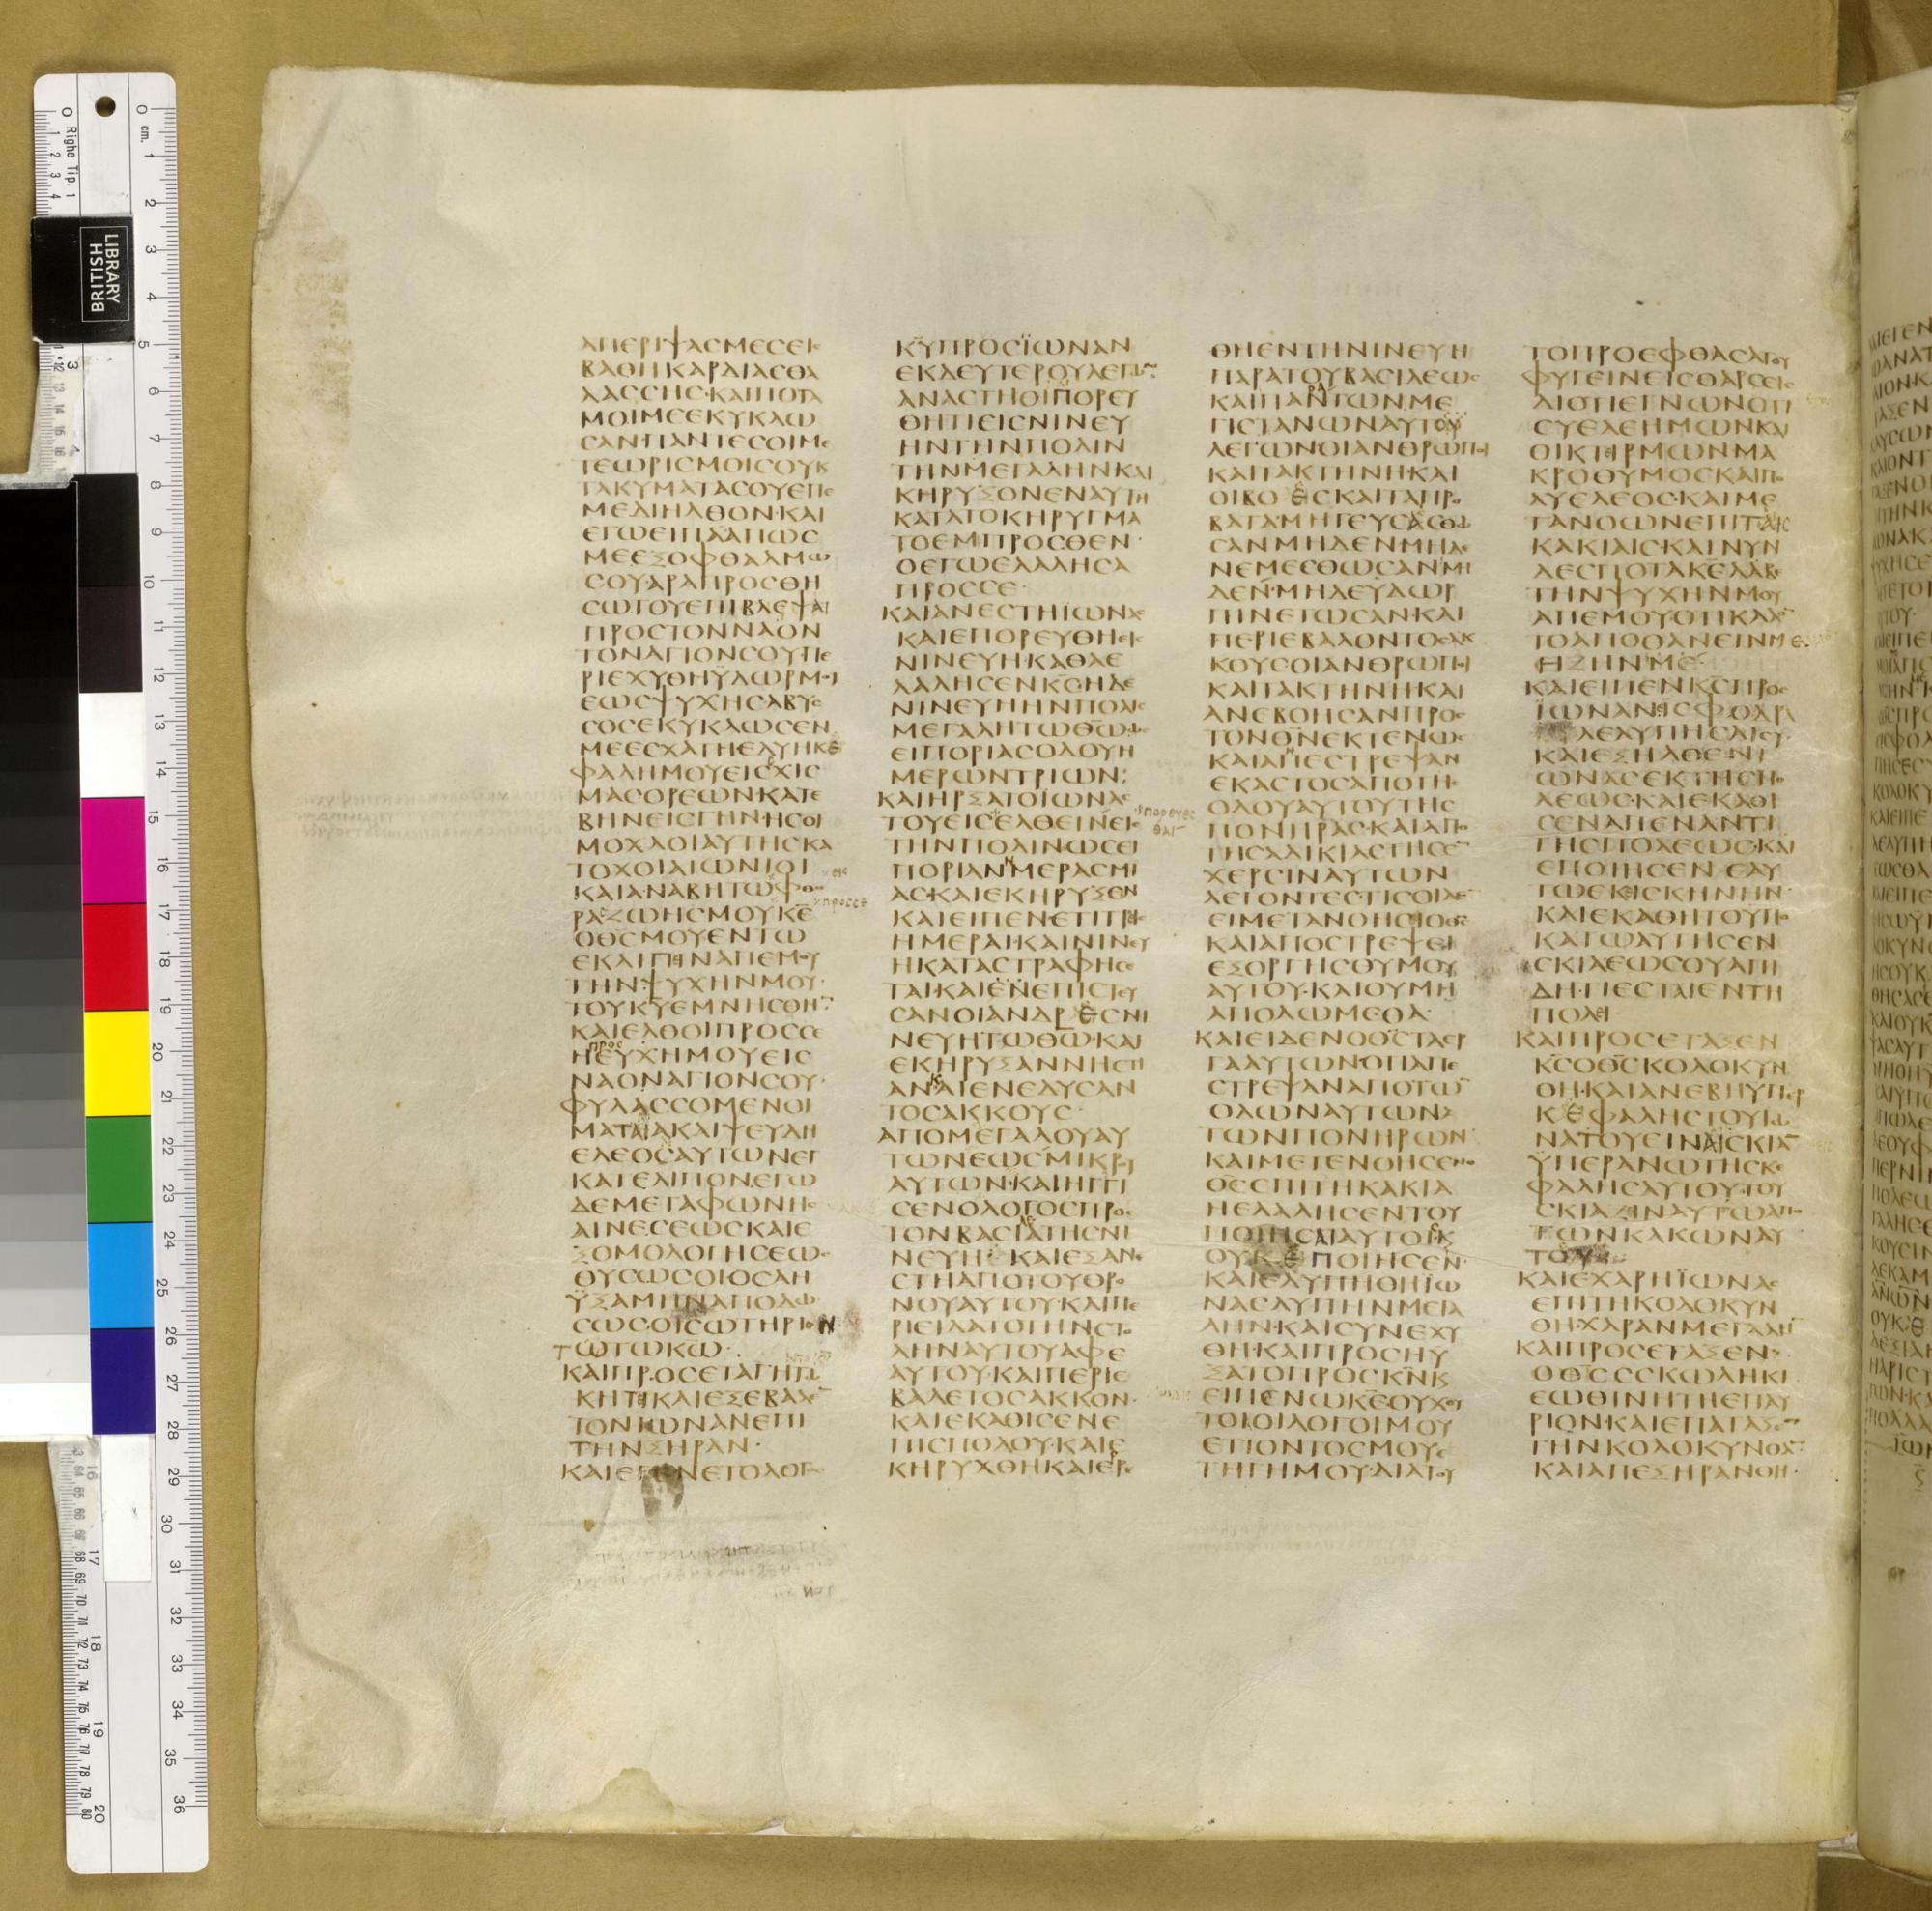 ΑΠΕΡΙΨΑCΜΕCΕΙC
ΒΑΘΗΚΑΡΔΙΑCΘΑ
ΛΑCCΗC·ΚΑΙΠΟΤΑ
ΜΟΙΜΕΕΚΥΚΛΩ
CΑΝΠΑΝΤΕCΟΙΜΕ
ΤΕΩΡΙCΜΟΙCΟΥΚ
ΤΑΚΥΜΑΤΑCΟΥΕΠΕ
ΜΕΔΙΗΛΘΟΝ·ΚΑΙ
ΕΓΩΕΙΠΑΑΠΩC
ΜΕΕΞΟΦΘΑΛΜΩ
CΟΥ·ΑΡΑΠΡΟCΘΗ
CΩΤΟΥΕΠΙΒΛΕΨΑΙ
ΠΡΟCΤΟΝΝΑΟΝ
ΤΟΝΑΓΙΟΝCΟΥΠΕ
ΡΙΕΧΥΘΗΫΔΩΡΜΟΙ
ΕΩCΨΥΧΗCΑΒΥC
CΟCΕΚΥΚΛΩCΕΝ
ΜΕΕCΧΑΤΗΕΔΥΗΚΕ
ΦΑΛΗΜΟΥΕΙCΧΙC
ΜΑCΟΡΕΩΝ·ΚΑΤΕ
ΒΗΝΕΙCΓΗΝ·ΗCΟΙ
ΜΟΧΛΟΙΑΥΤΗCΚΑ
ΤΟΧΟΙΑΙΩΝΙΟΙ
ΚΑΙΑΝΑΒΗΤΩΦΘΟ
ΡΑΖΩΗCΜΟΥΚΕ
ΟΘCΜΟΥΕΝΤΩ
ΕΚΛΙΠΙΝΑΠΕΜΟΥ
ΤΗΝΨΥΧΗΝΜΟΥ
ΤΟΥΚΥΕΜΝΗCΘΗΝ
ΚΑΙΕΛΘΟΙΠΡΟCCΕ
ΗΠΡΟCΕΥΧΗΜΟΥΕΙC
ΝΑΟΝΑΓΙΟΝCΟΥ·
ΦΥΛΑCCΟΜΕΝΟΙ
ΜΑΤΑΙΑΚΑΙΨΕΥΔΗ
ΕΛΕΟCΑΥΤΩΝΕΓ
ΚΑΤΕΛΙΠΟΝ·ΕΓΩ
ΔΕΜΕΤΑΦΩΝΗC
ΑΙΝΕCΕΩCΚΑΙΕ
ΞΟΜΟΛΟΓΗCΕΩC
ΘΥCΩCΟΙΟCΑΗ
ΫΞΑΜΗΝΑΠΟΔΩ
CΩC·ΟΙCΩΤΗΡΙΟΝ
ΤΩΤΩΚΩ·
ΚΑΙΠΡΟCΕΤΑΓΗΤΩ
ΚΗΤΙΚΑΙΕΞΕΒΑΛΕ
ΤΟΝΙΩΝΑΝΕΠΙ
ΤΗΝΞΗΡΑΝ·
ΚΑΙΕΓΕΝΕΤΟΛΟΓΟC
ΚΫΠΡΟCΪΩΝΑΝ
ΕΚΔΕΥΤΕΡΟΥΛΕΓΩΝ
ΑΝΑCΤΗΘΙΠΟΡΕΥ
ΘΗΤΙΕΙCΝΙΝΕΥ
ΗΝΤΗΝΠΟΛΙΝ
ΤΗΝΜΕΓΑΛΗΝΚΑΙ
ΚΗΡΥΞΟΝΕΝΑΥΤΗ
ΚΑΤΑΤΟΚΗΡΥΓΜΑ
ΤΟΕΜΠΡΟCΘΕΝ·
ΟΕΓΩΕΛΑΛΗCΑ
ΠΡΟCCΕ·
ΚΑΙΑΝΕCΤΗΙΩΝΑC
ΚΑΙΕΠΟΡΕΥΘΗΕΙC
ΝΙΝΕΥΗΚΑΘΑΕ
ΛΑΛΗCΕΝΚC·ΗΔΕ
ΝΙΝΕΥΗΗΝΠΟΛΙC
ΜΕΓΑΛΗΤΩΘΩΩC
ΕΙΠΟΡΙΑCΟΔΟΥΗ
ΜΕΡΩΝΤΡΙΩΝ;
ΚΑΙΗΡΞΑΤΟΙΩΝΑC
ΤΟΥΕΙCΕΛΘΕΙΝΕΙC
ΤΗΝΠΟΛΙΝΩCΕΙ
ΠΟΡΙΑΝΗΜΕΡΑCΜΙ
ΑC·ΚΑΙΕΚΗΡΥΞΕΝ
ΚΑΙΕΙΠΕΝΕΤΙΤΡΙC
ΗΜΕΡΑΙΚΑΙΝΙΝΕΥ
ΗΚΑΤΑCΤΡΑΦΗCΕ
ΤΑΙ·ΚΑΙΕΝΕΠΙCΤΕΥ
CΑΝΟΙΑΝΔΡΕCΝΙ
ΝΕΥΗΤΩΘΩ·ΚΑΙ
ΕΚΗΡΥΞΑΝΝΗCΤΙ
ΑΝΚΑΙΕΝΕΔΥCΑΝ
ΤΟCΑΚΚΟΥC·
ΑΠΟΜΕΓΑΛΟΥΑΥ
ΤΩΝΕΩCΜΙΚΡΟΥ
ΑΥΤΩΝ·ΚΑΙΗΓΓΙ
CΕΝΟΛΟΓΟCΠΡΟC
ΤΟΝΒΑCΙΛΕΑΤΗCΝΙ
ΝΕΥΗ· ΚΑΙΕΞΑΝΕ
CΤΗΑΠΟΤΟΥΘΡΟ
ΝΟΥΑΥΤΟΥΚΑΙΠΕ
ΡΙΕΙΛΑΤΟΤΗΝCΤΟ
ΛΗΝΑΥΤΟΥΑΦΕ
ΑΥΤΟΥ·ΚΑΙΠΕΡΙΕ
ΒΑΛΕΤΟCΑΚΚΟΝ·
ΚΑΙΕΚΑΘΙCΕΝΕ
ΠΙCΠΟΔΟΥ·ΚΑΙΕ
ΚΗΡΥΧΘΗΚΑΙΕΡΡΕ
ΘΗΕΝΤΗΝΙΝΕΥΗ
ΠΑΡΑΤΟΥΒΑCΙΛΕΩC
ΚΑΙΠΑΝΤΩΝΜΕ
ΓΙCΤΑΝΩΝΑΥΤΟΥ
ΛΕΓΩΝΟΙΑΝΘΡΩΠΟΙ
ΚΑΙΤΑΚΤΗΝΗ·ΚΑΙ
ΟΙΒΟΕCΚΑΙΤΑΠΡΟ
ΒΑΤΑΜΗΓΕΥCΑCΘΩ
CΑΝΜΗΔΕΝΜΗΔΕ
ΝΕΜΕCΘΩCΑΝΜΗ
ΔΕΝ·ΜΗΔΕΫΔΩΡ
ΠΙΝΕΤΩCΑΝ·ΚΑΙ
ΠΕΡΙΕΒΑΛΟΝΤΟCΑΚ
ΚΟΥCΟΙΑΝΘΡΩΠΟΙ
ΚΑΙΤΑΚΤΗΝΗΚΑΙ
ΑΝΕΒΟΗCΑΝΠΡΟC
ΤΟΝΘΝΕΚΤΕΝΩC
ΚΑΙΑΠΕCΤΡΕΨΑΝ
ΕΚΑCΤΟCΑΠΟΤΗC
ΟΔΟΥΑΥΤΟΥΤΗC
ΠΟΝΗΡΑC·ΚΑΙΑΠΟ
ΤΗCΑΔΙΚΙΑCΤΗCΕΝ
ΧΕΡCΙΝΑΥΤΩΝ
ΛΕΓΟΝΤΕC·ΤΙCΟΙΔΕ
ΕΙΜΕΤΑΝΟΗCΙΟΘC
ΚΑΙΑΠΟCΤΡΕΨΕΙ
ΕΞΟΡΓΗCΘΥΜΟΥ
ΑΥΤΟΥ·ΚΑΙΟΥΜΗ
ΑΠΟΛΩΜΕΘΑ·
ΚΑΙΕΙΔΕΝΟΘCΤΑΕΡ
ΓΑΑΥΤΩΝΟΤΙΑΠΕ
CΤΡΕΨΑΝΑΠΟΤΩΝ
ΟΔΩΝΑΥΤΩΝ
ΤΩΝΠΟΝΗΡΩΝ·
ΚΑΙΜΕΤΕΝΟΗCΕΝΟ
ΘCΕΠΙΤΗΚΑΚΙΑ
ΗΕΛΑΛΗCΕΝΤΟΥ
ΠΟΙΗCΑΙΑΥΤΟΙC·Κ
ΟΥΚΕΠΟΙΗCΕΝ·
ΚΑΙΕΛΥΠΗΘΗΪΩ
ΝΑCΛΥΠΗΝΜΕΓΑ
ΛΗΝ·ΚΑΙCΥΝΕΧΥ
ΘΗ·ΚΑΙΠΡΟCΗΥ
ΞΑΤΟΠΡΟCΚΝΚ
ΕΙΠΕΝΩΚΕ·ΟΥΧΟΥ
ΤΟΙΟΙΛΟΓΟΙΜΟΥ
ΕΤΙΟΝΤΟCΜΟΥΕΝ
ΤΗΓΗΜΟΥ·ΔΙΑΤΟΥ
ΤΟΠΡΟΕΦΘΑCΑΤΟΥ
ΦΥΓΕΙΝΕΙCΘΑΡCΕΙC
ΔΙΟΤΙΕΓΝΩΝΟΤΙ
CΥΕΛΕΗΜΩΝΚΑΙ
ΟΙΚΤΙΡΜΩΝΜΑ
ΚΡΟΘΥΜΟCΚΑΙΠΟ
ΛΥΕΛΕΟC·ΚΑΙΜΕ
ΤΑΝΟΩΝΕΠΙΤΑΙC
ΚΑΚΙΑΙC·ΚΑΙΝΥΝ
ΔΕCΠΟΤΑΚΕΛΑΒΕ
ΤΗΝΨΥΧΗΝΜΟΥ
ΑΠΕΜΟΥΟΤΙΚΑΛΟΝ
ΤΟΑΠΟΘΑΝΕΙΝΜΕ
ΗΖΗΝΜΕ·
ΚΑΙΕΙΠΕΝΚCΠΡΟC
ΪΩΝΑΝΙCΦΟΔΡΑ
ΛΕΛΥΠΗCΑΙCΥ·
ΚΑΙΕΞΗΛΘΕΝΙ
ΩΝΑCΕΚΤΗCΠΟ
ΛΕΩC·ΚΑΙΕΚΑΘΙ
CΕΝΑΠΕΝΑΝΤΙ
ΤΗCΠΟΛΕΩC·ΚΑΙ
ΕΠΟΙΗCΕΝΕΑΥ
ΤΩΕΚΙCΚΗΝΗΝ·
ΚΑΙΕΚΑΘΗΤΟΥΠΟ
ΚΑΤΩΑΥΤΗCΕΝ
CΚΙΑΕΩCΟΥΑΠΙ
ΔΗ·ΤΙΕCΤΑΙΕΝΤΗ
ΠΟΛΙ·
ΚΑΙΠΡΟCΕΤΑΞΕΝ
ΚCΟΘCΚΟΛΟΚΥΝ
ΘΗ·ΚΑΙΑΝΕΒΗΫΠΕΡ
ΚΕΦΑΛΗCΤΟΥΙΩ
ΝΑΤΟΥΕΙΝΑΙCΚΙΑΝ
ΫΠΕΡΑΝΩΤΗCΚΕ
ΦΑΛΗCΑΥΤΟΥ·ΤΟΥ
CΚΙΑΖΙΝΑΥΤΩΑΠΟ
ΤΩΝΚΑΚΩΝΑΥ
ΤΟΥ·
ΚΑΙΕΧΑΡΗΪΩΝΑC
ΕΠΙΤΗΚΟΛΟΚΥΝ
ΘΗ·ΧΑΡΑΝΜΕΓΑΛΗΝ
ΚΑΙΠΡΟCΕΤΑΞΕΝ
ΟΘCCΚΩΛΗΚΙ
ΕΩΘΙΝΗΤΗΕΠΑΥ
ΡΙΟΝ·ΚΑΙΕΠΑΤΑΞΕΝ
ΤΗΝΚΟΛΟΚΥΝΘΑΝ
ΚΑΙΑΠΕΞΗΡΑΝΘΗ·
BRITISH
LIBRARY
Righe Tip. 1
cm.